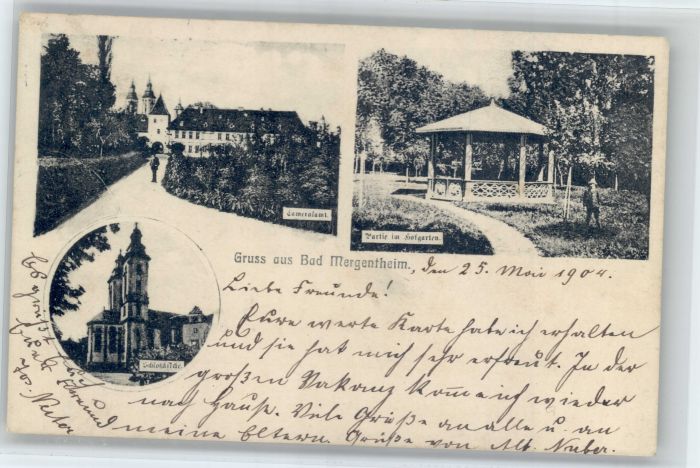 Cameralamt.
Partie im Hofgarten.
Schlosskirche.
Gruss aus Bad Mergentheim, den 25. Mai 1904.
Liebe Freunde!
Eure werte Karte habe ich erhalten
und sie hat mich sehr erfreut. In der
großen Vakanz komme ich wieder
nach Hause. Viele Grüße an alle u. an
meine Eltern. Grüße von Alb. Nuber.
Es grüßt Euch
Euer Freund
Nuber